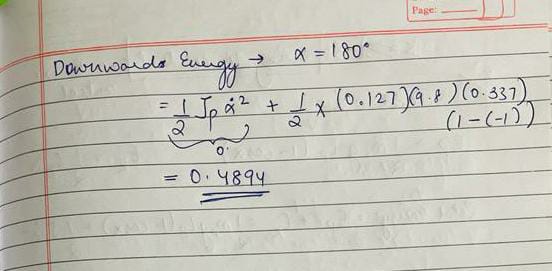 Page:
Downwards Energy → α = 180°
= 1/2 Jp α̇² + 1/2 × (0.127)(9.8)(0.337)
(1-(-1))
0.
= 0.4894